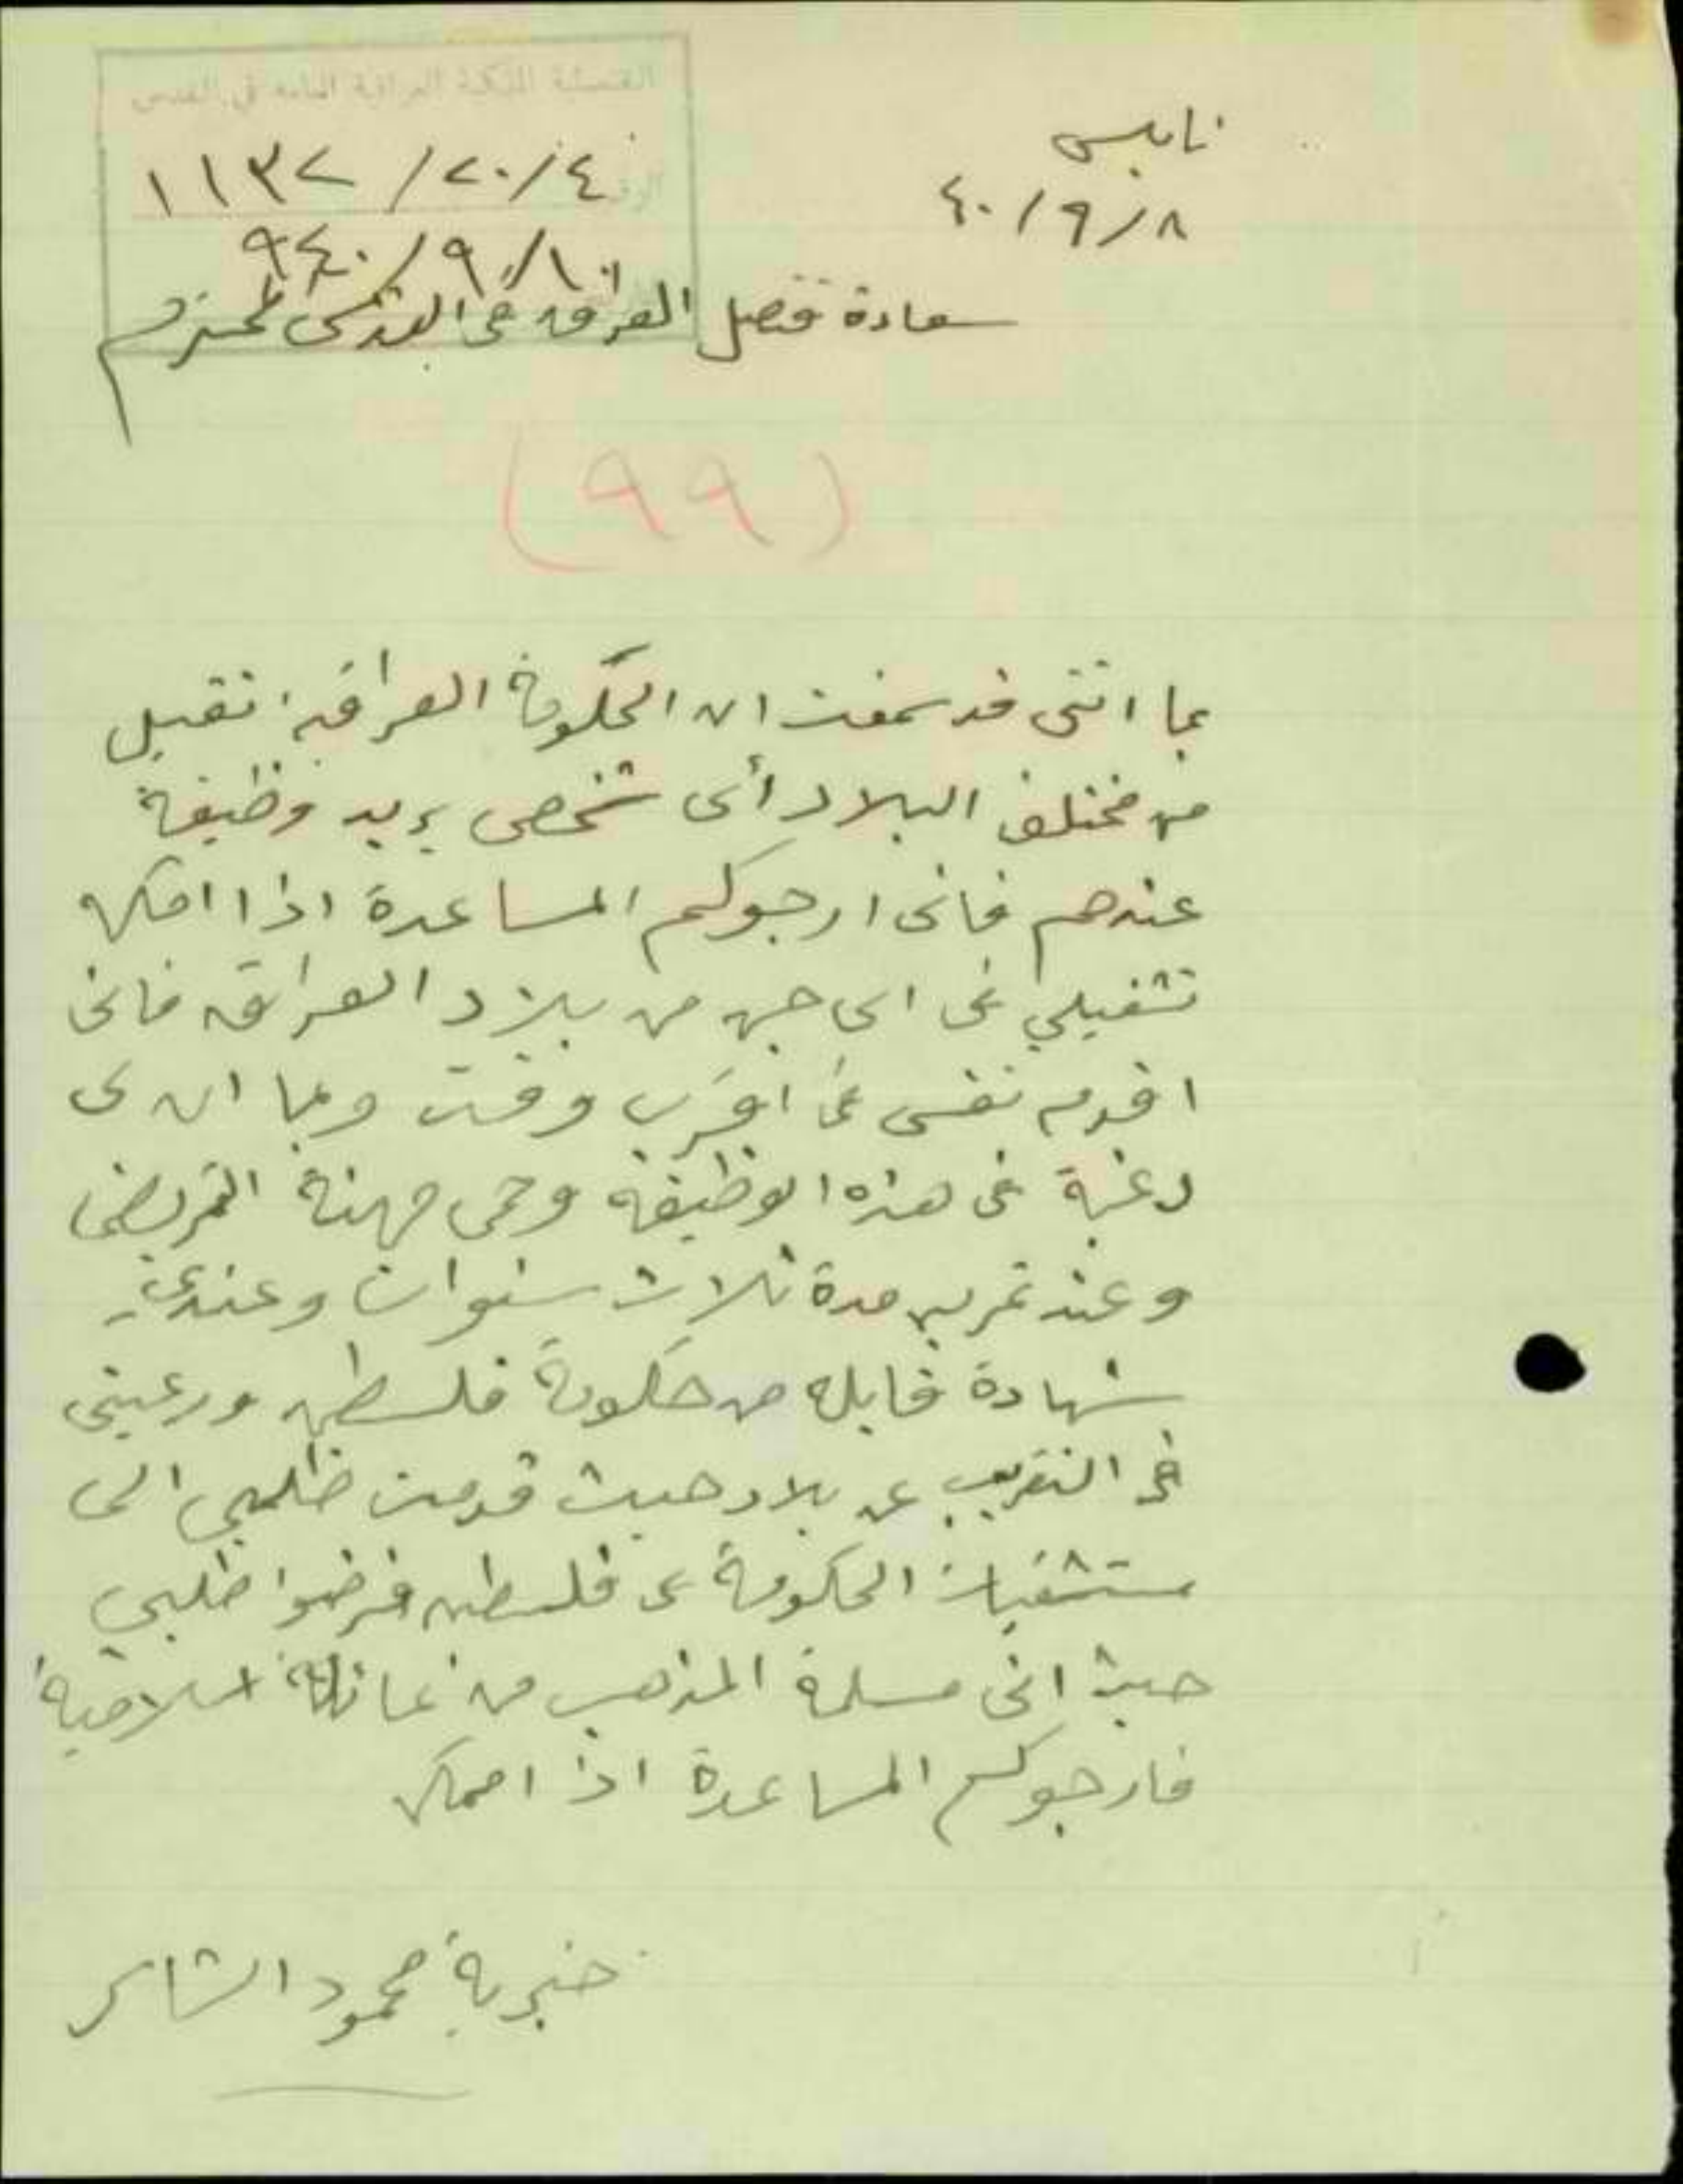 القنصلية الملكية العراقية العامة في القدس
١١٣٢/٢٠/٤
٩٤٠/٩/١٠
نابلس
٤٠/٩/٨
سعادة قنصل العراق في القدس المحترم
(٩٩)
بما انني قد سمعت ان الحكومة العراقيه تقبل
من مختلف البلاد أي شخص يريد وظيفة
عندهم فاني ارجوكم المساعدة اذا امكن
تشغيلي في اي جهه من بلاد العراق فاني
اقدم نفسي في اقرب وقت وبما ان لي
رغبة في هذه الوظيفه وهي مهنة التمريض
وعند تمرين مدة ثلاث سنوات وعندي
شهادة قابله من حكومة فلسطين ورغبتي
في التغريب عن بلاد حيث قدمت طلبي الى
مستشفيات الحكومة في فلسطين فرفضوا طلبي
حيث اني مسلمة المذهب من عائلة اسلامية
فارجوكم المساعدة اذا امكن
خيرية محمود الشاعر